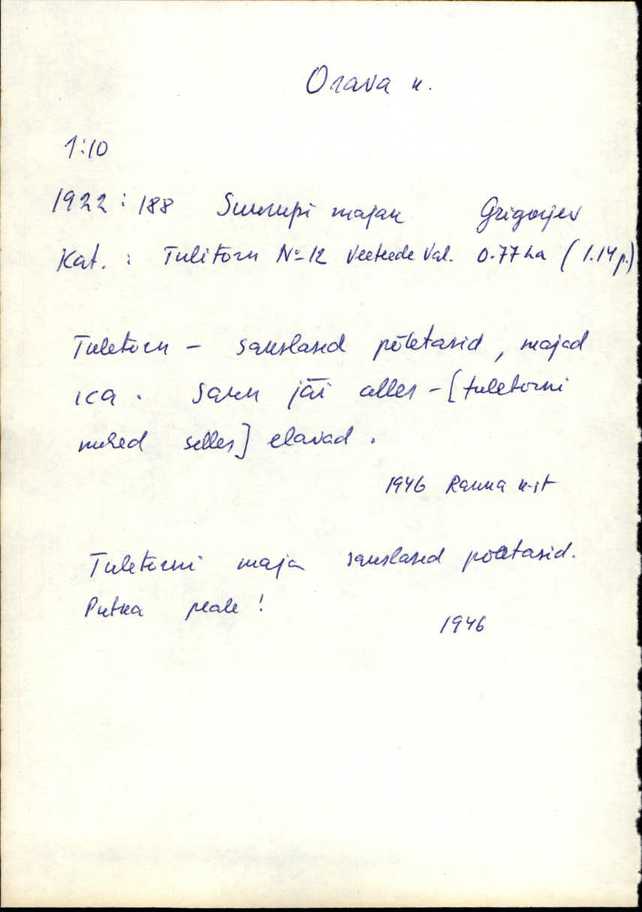 Orava k.
1:10
1922: 188 Suurupi majak Grigorjev
Kat.: Tulitorn No 12 Veeteede Val. 0.77 ha (1.14 p.)
Tuletorn - sakslased põletasid, majad
ka. Saun jäi alles - [tuletorni
mehed selles] elavad.
1946 Ranna k-st
Tuletorni maja sakslased põletasid.
Putka peale!
1946